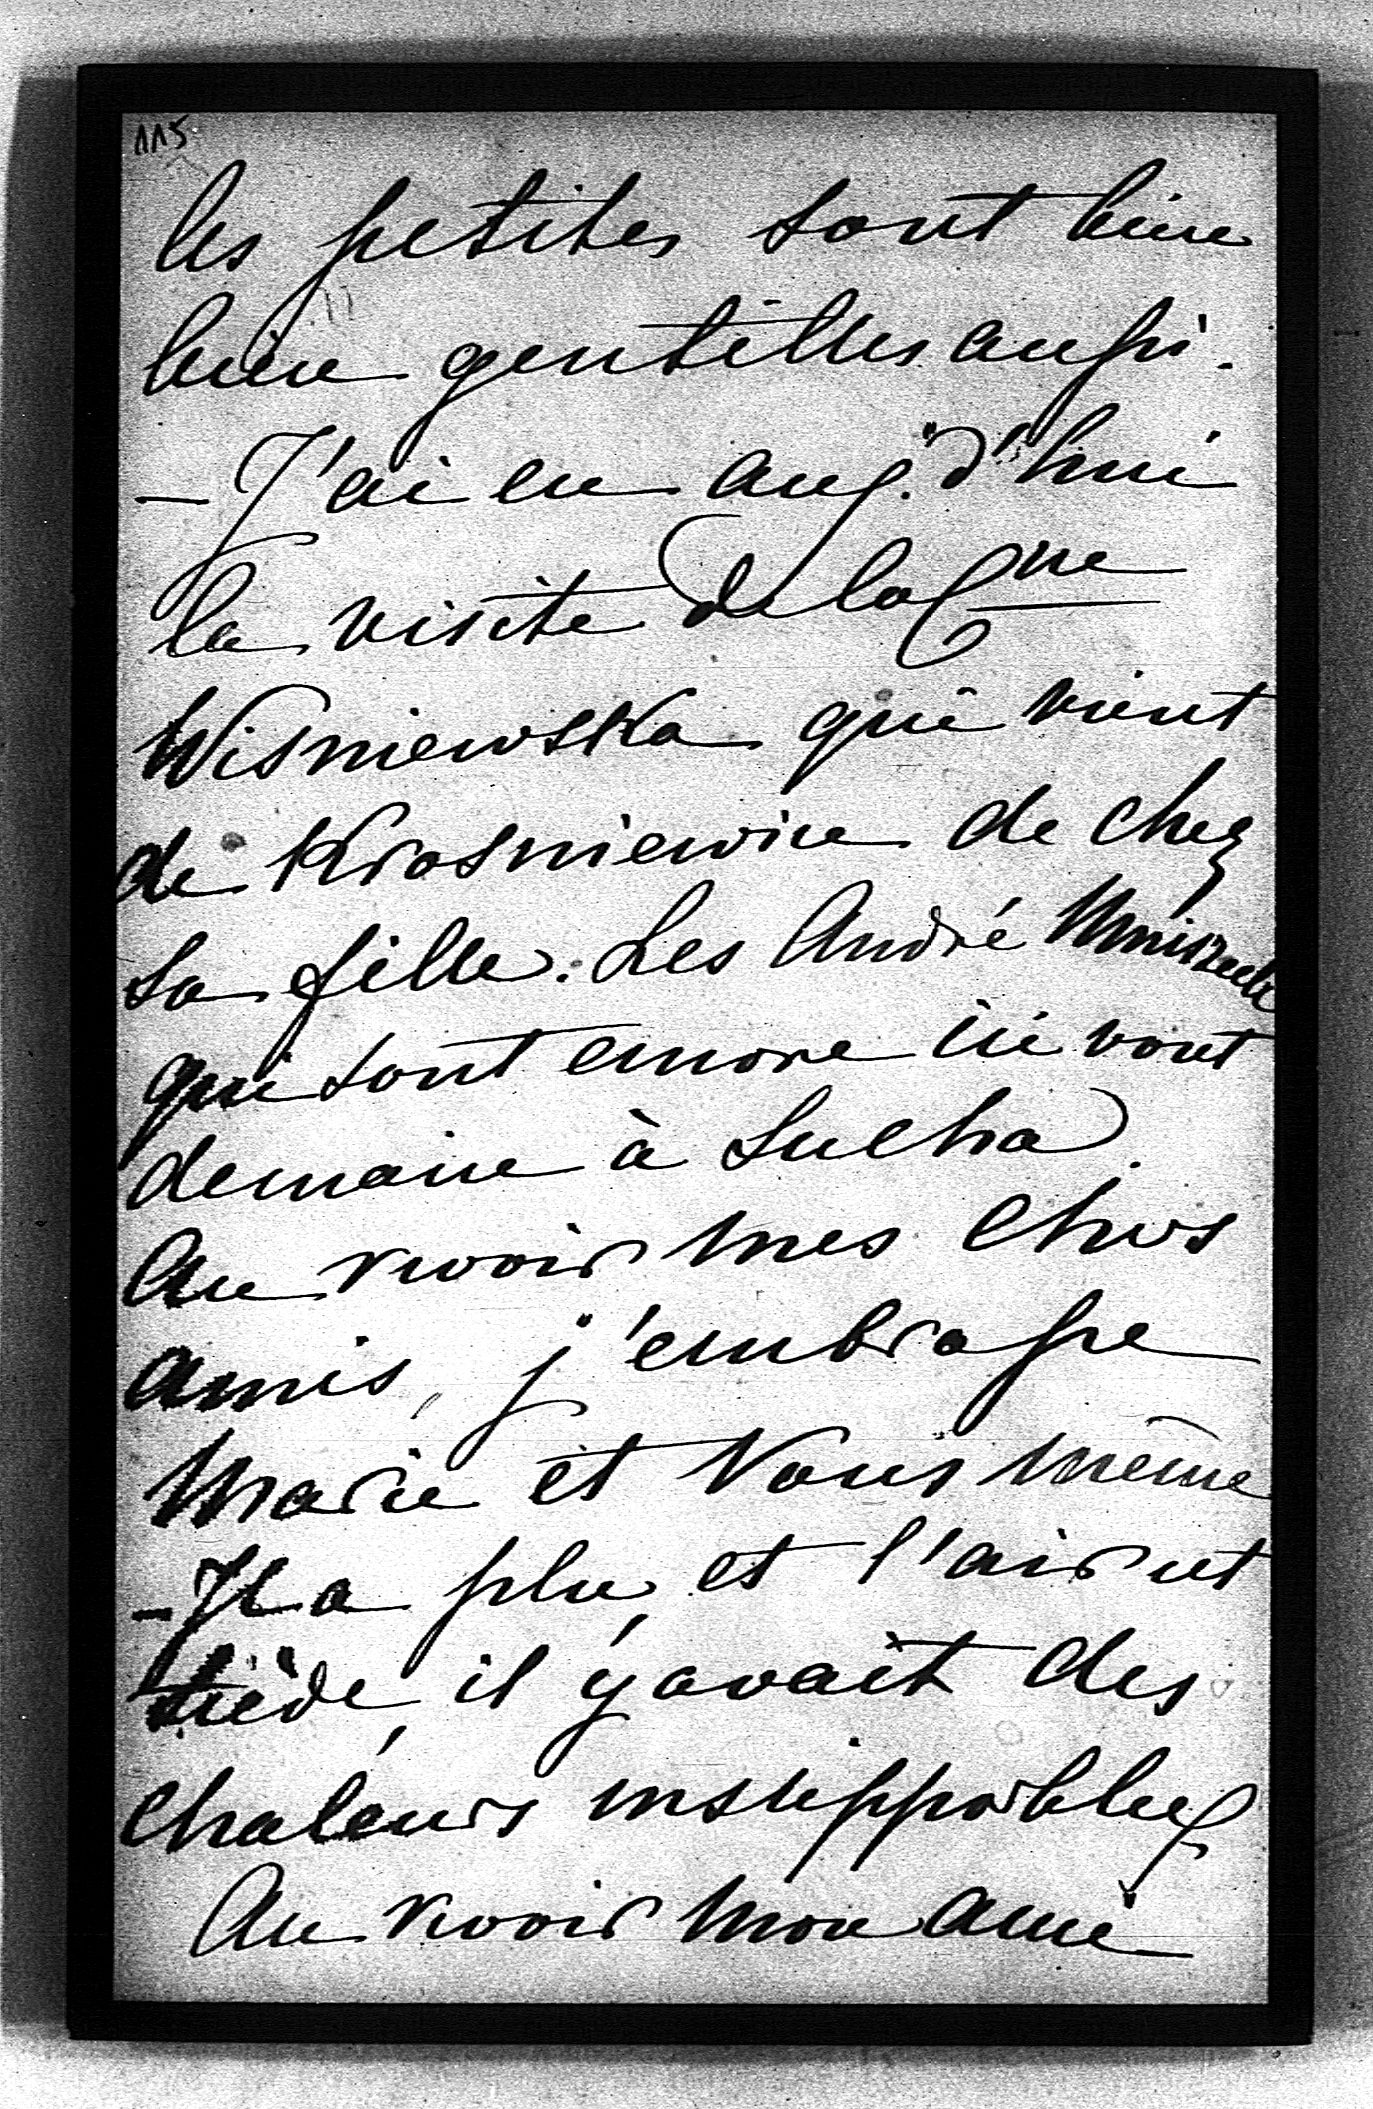 115
les petites sont bien
bien gentilles aussi.
– J'ai eu auj. d'hui
la visite de la Csse
Wisniewska qui vient
de Krosniewice de chez
sa fille. Les André Mniszech
qui sont encore ici vont
demain à Sucha.
Au revoir mes chers
amis, j'embrasse
Marie et Vous même
– Il a plu et l'air est
tiède, il y avait des
chaleurs insupportables
Au revoir mon ami